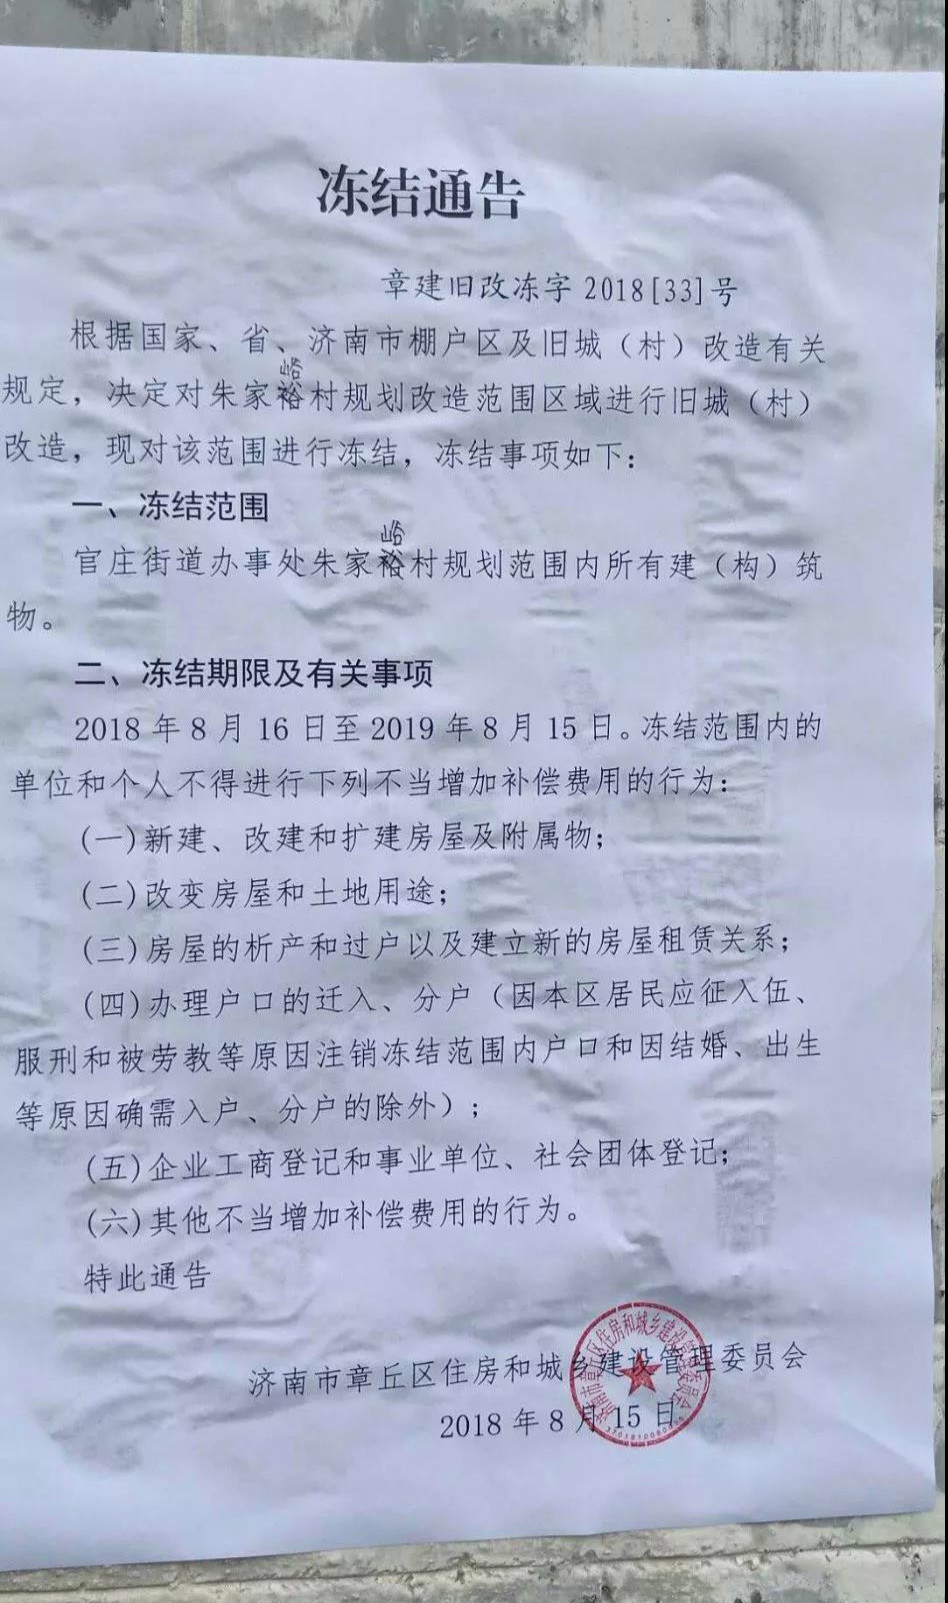 冻结通告
章建旧改冻字 2018[33]号
根据国家、省、济南市棚户区及旧城（村）改造有关
峪
规定，决定对朱家裕村规划改造范围区域进行旧城（村）
改造，现对该范围进行冻结，冻结事项如下：
一、冻结范围
峪
官庄街道办事处朱家裕村规划范围内所有建（构）筑
物。
二、冻结期限及有关事项
2018 年 8 月 16 日至 2019 年 8 月 15 日。冻结范围内的
单位和个人不得进行下列不当增加补偿费用的行为：
(一)新建、改建和扩建房屋及附属物；
(二)改变房屋和土地用途；
(三)房屋的析产和过户以及建立新的房屋租赁关系；
(四)办理户口的迁入、分户（因本区居民应征入伍、
服刑和被劳教等原因注销冻结范围内户口和因结婚、出生
等原因确需入户、分户的除外）；
(五)企业工商登记和事业单位、社会团体登记；
(六)其他不当增加补偿费用的行为。
特此通告
济南市章丘区住房和城乡建设管理委员会
2018 年 8 月 15 日
济南市章丘区住房和城乡建设管理委员会